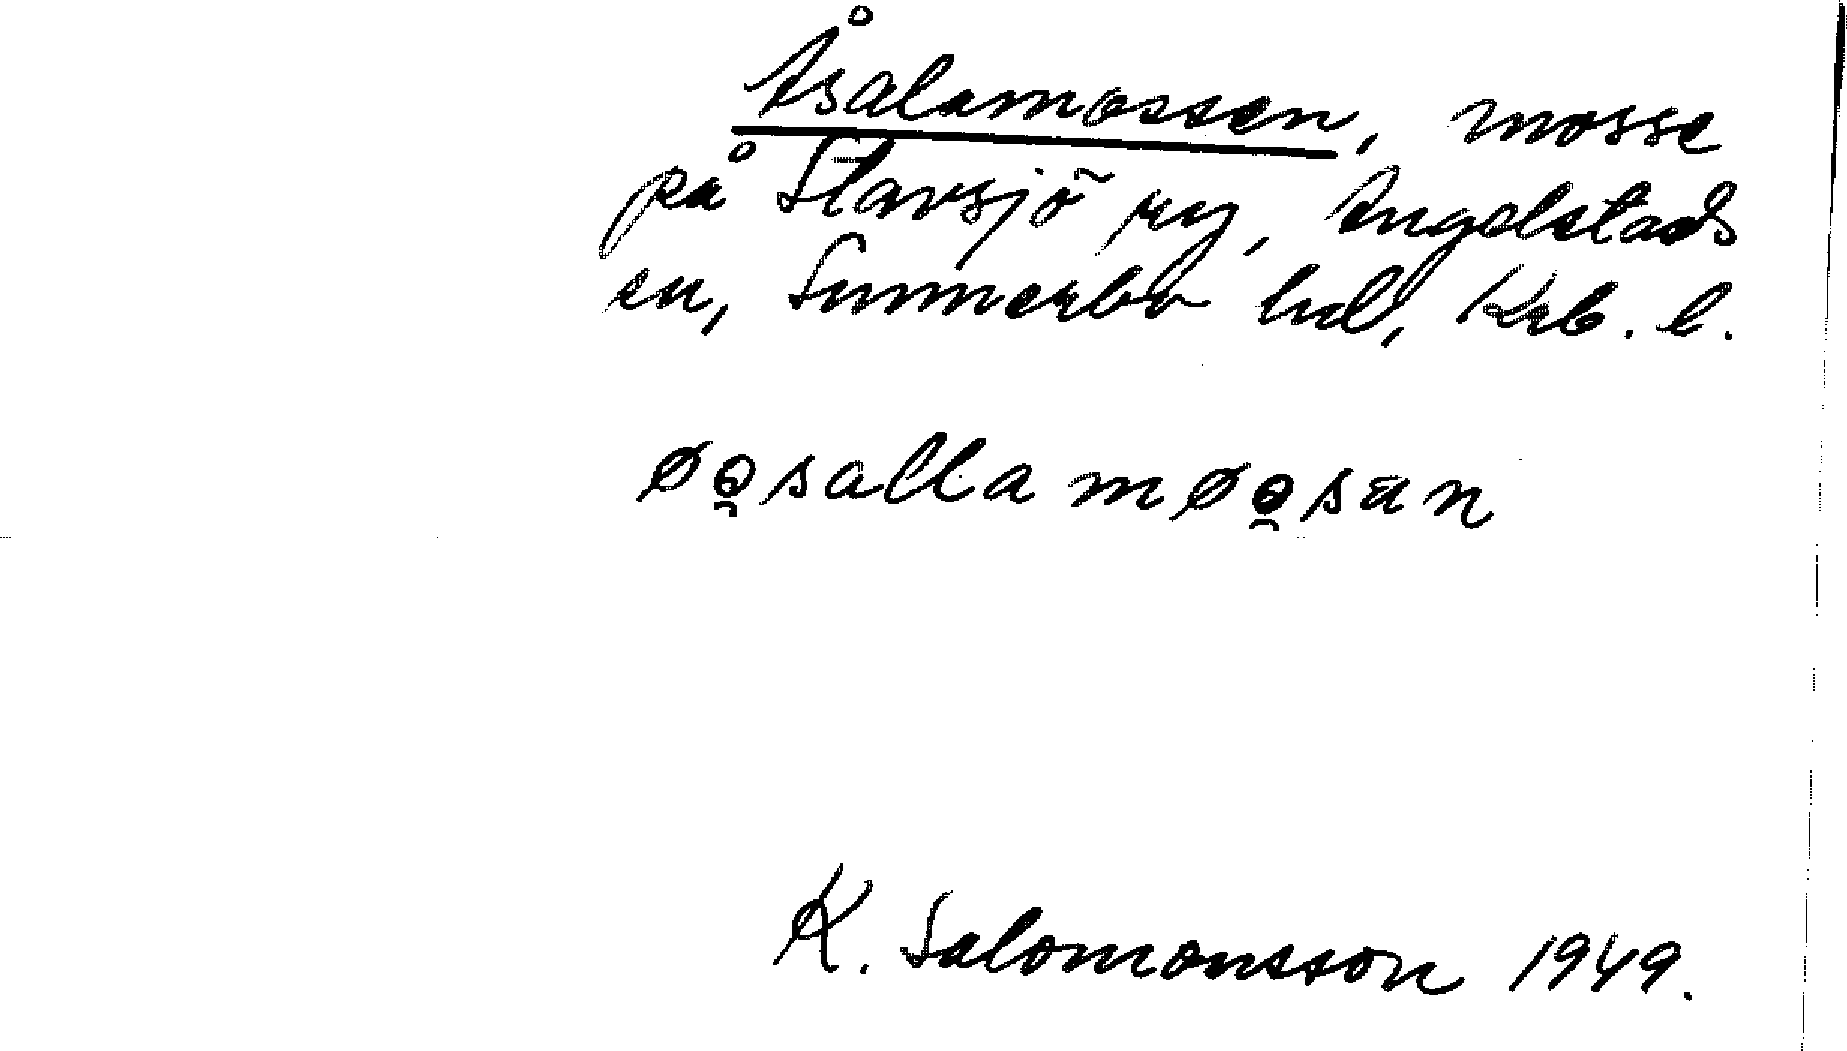 Åsalamossen, mosse
på Slavsjö ry, Angelstads
sn, Sunnerbo hd, Krb. l.
øo̯salla møo̯san
K. Salomonsson 1949.